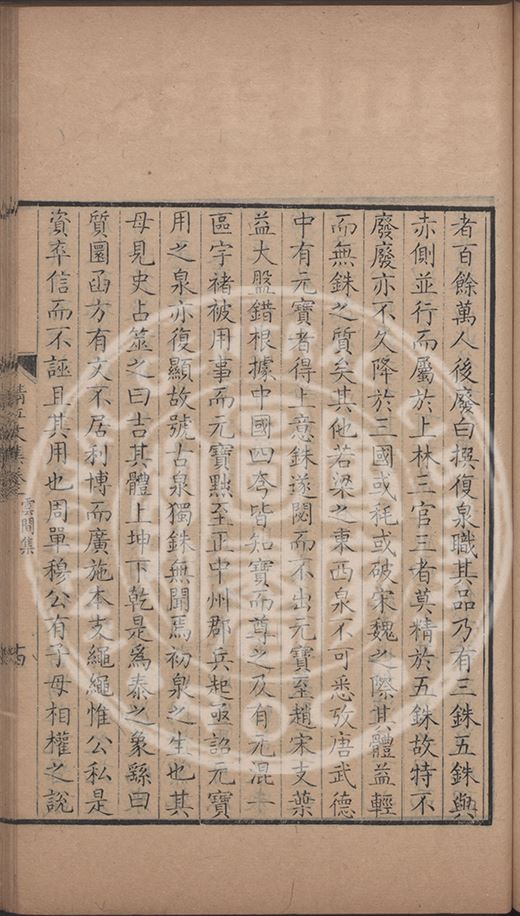 者百餘萬人後廢白撰復泉職其品乃有三銖五銖與
赤側並行而屬於上林三官三者莫精於五銖故特不
廢廢亦不久降於三國或秏或破宋魏之際其體益輕
而無銖之質矣其他若梁之東西泉不可悉攷唐武德
中有元寶者得上意銖遂閟而不出元寶至趙宋支葉
益大盤錯根據中國四夸皆知寶而尊之及有元混一
區字褚被用事而元寶黜至正中州郡兵起亟詔元寶
用之泉亦復顯故號古泉獨銖無聞焉初泉之生也其
母見史占筮之曰吉其體上坤下乾是為泰之象繇曰
質圜函方有文不居利博而廣施本支繩繩惟公私是
資弃信而不誣且其用也周單穆公有子母相權之說
清江貝集卷
雲間集